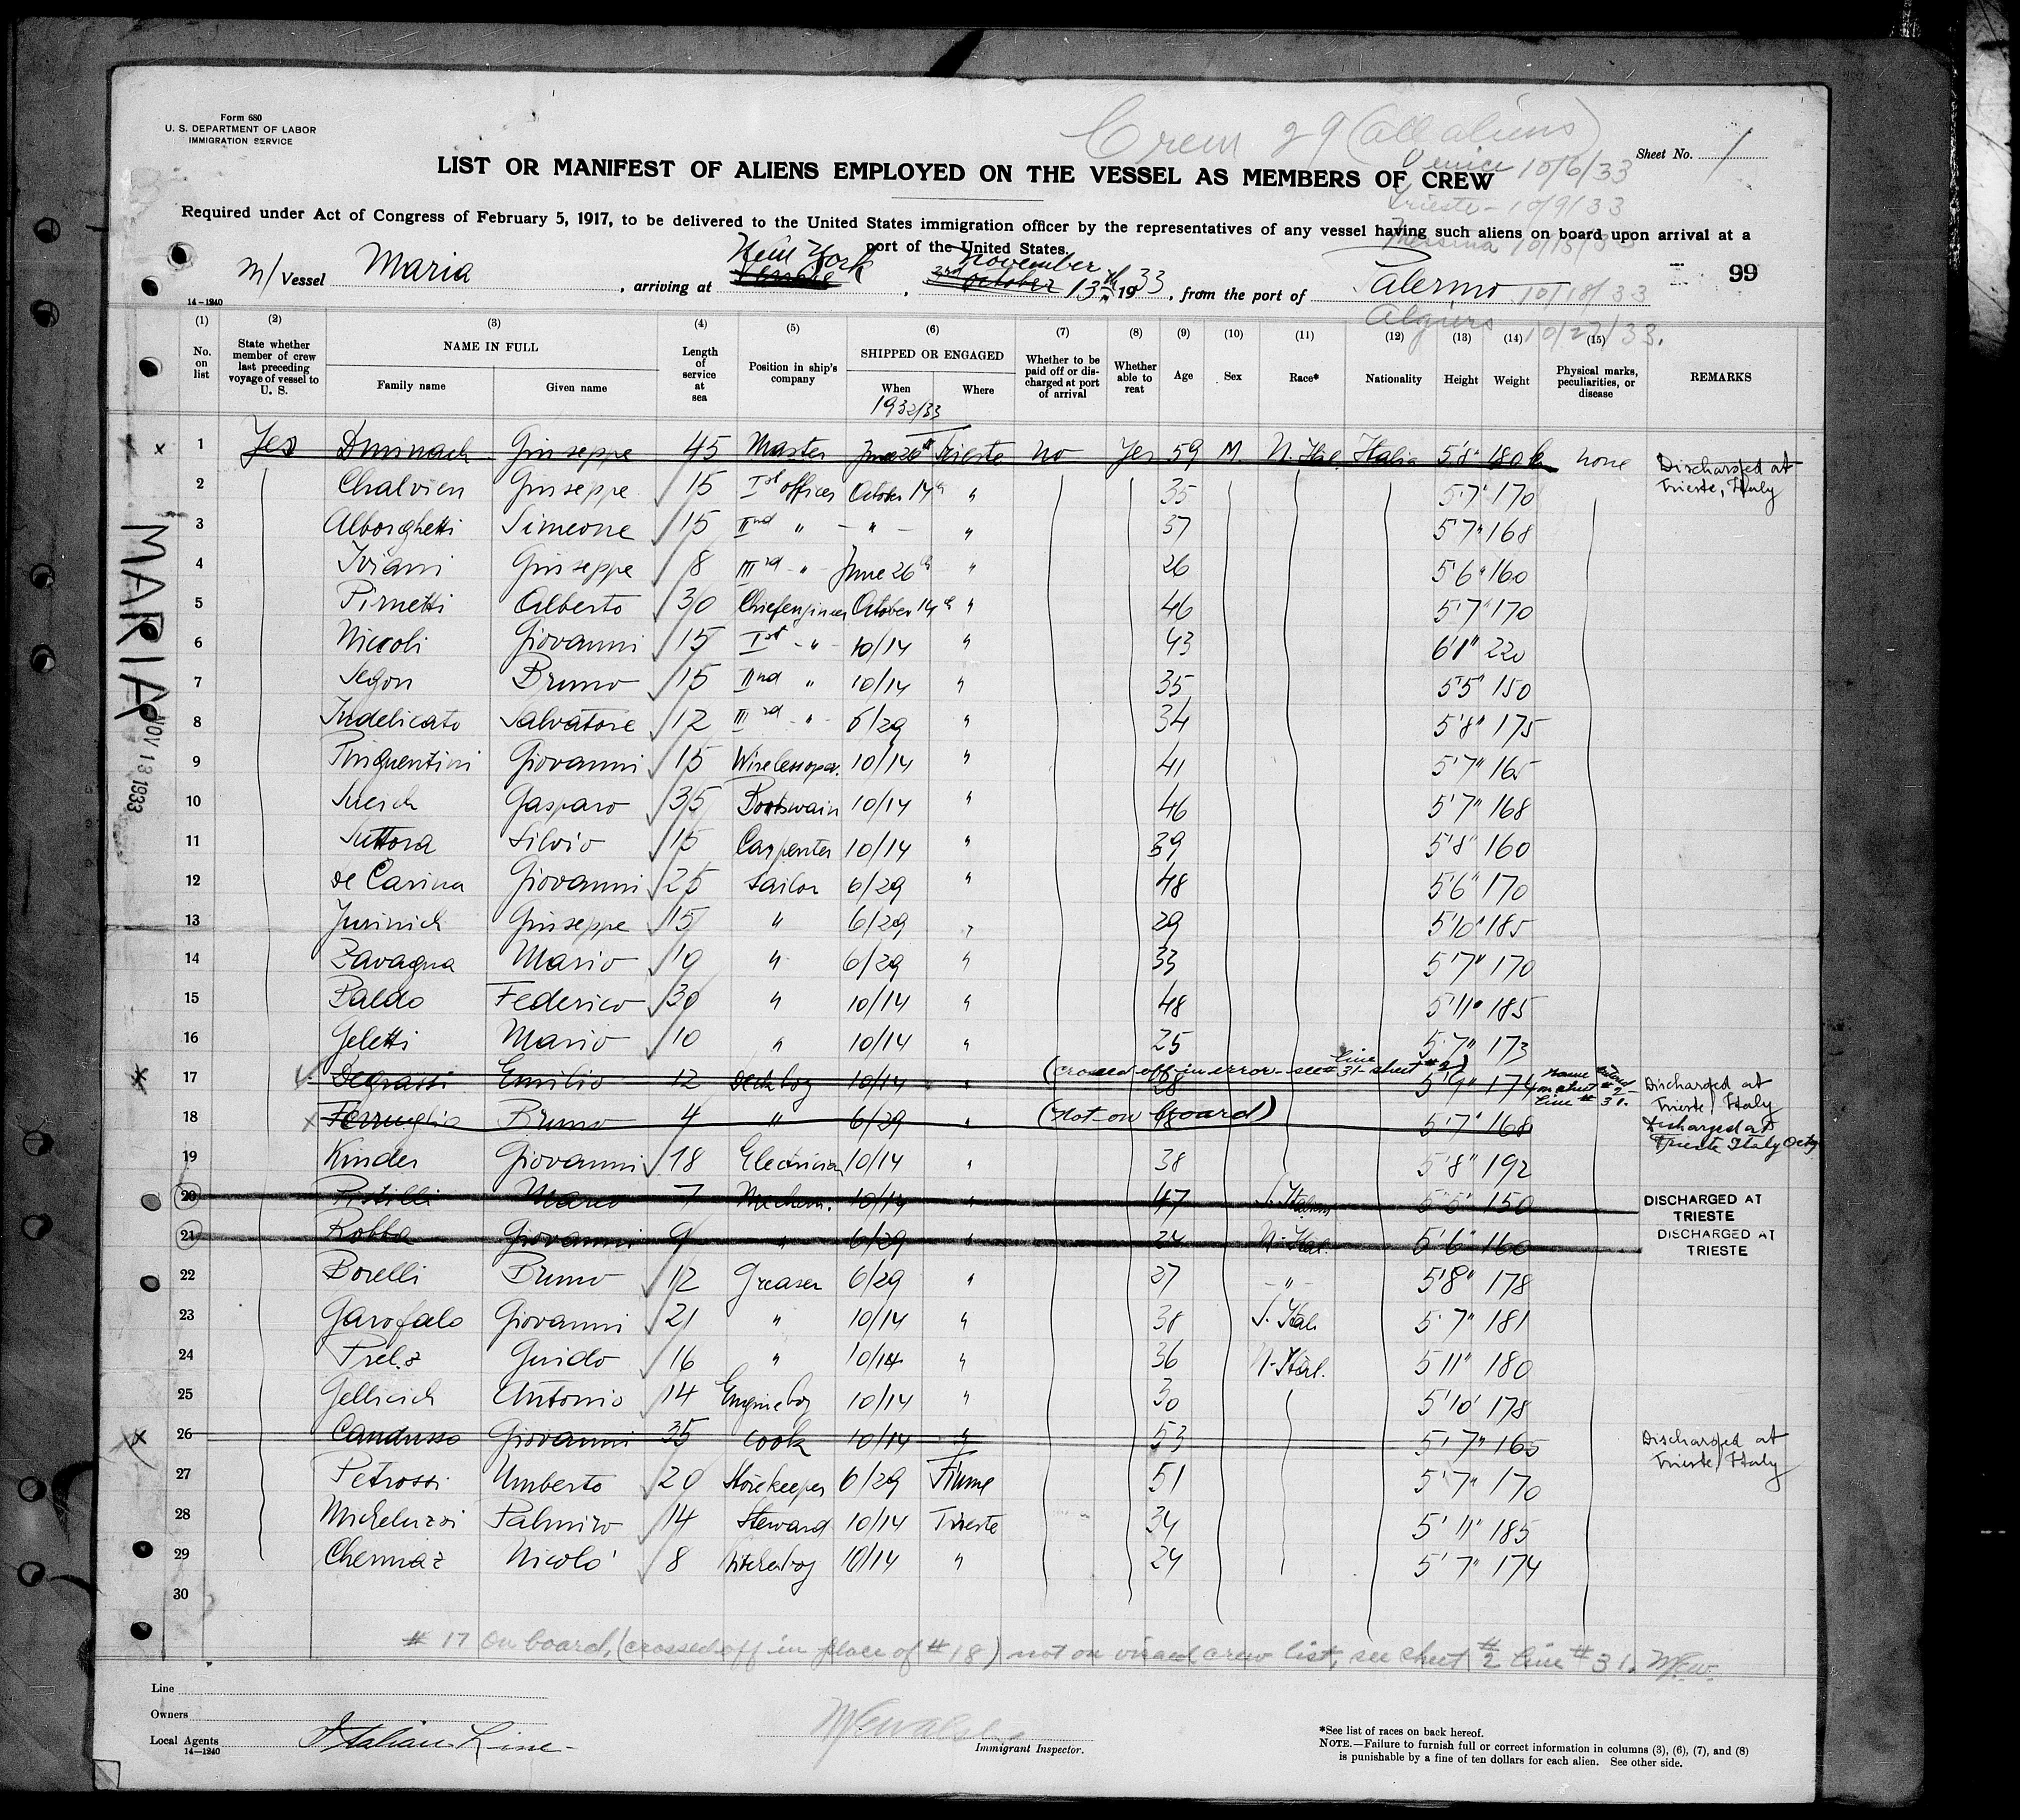 Form 680
U. S. DEPARTMENT OF LABOR
IMMIGRATION SERVICE
Crew 29 (all aliens)
Sheet No. 1
LIST OR MANIFEST OF ALIENS EMPLOYED ON THE VESSEL AS MEMBERS OF CREW
Venice 10/6/33
Trieste - 10/9/33
Required under Act of Congress of February 5, 1917, to be delivered to the United States immigration officer by the representatives of any vessel having such aliens on board upon arrival at a
port of the United States.
Messina 10/15/33
New York November
M/ Vessel Maria, arriving at, 3rd October 13th 1933, from the port of Palermo 10/18/33
99
Algiers 10/22/33.
14-1240
(1) (2) (3) (4) (5) (6) (7) (8) (9) (10) (11) (12) (13) (14) (15)
No. on list
State whether member of crew last preceding voyage of vessel to U. S.
NAME IN FULL
Family name
Given name
Length of service at sea
Position in ship's company
SHIPPED OR ENGAGED
When
1932/33
Where
Whether to be paid off or discharged at port of arrival
Whether able to reat
Age
Sex
Race*
Nationality
Height
Weight
Physical marks, peculiarities, or disease
REMARKS
1 Yes Giuseppe 45 Master June 26th Trieste no Yes 59 M. N. Ital. Italia 5'8" 180 none Discharged at Trieste, Italy
2 Chalvien Giuseppe 15 Ist officer October 14th " 35 5'7" 170
3 Alborghetti Simeone 15 IInd " - " - " 37 5'7" 168
4 Iviani Giuseppe 8 IIIrd - " - June 26th " 26 5'6" 160
5 Pirnetti Alberto 30 Chiefengineer October 14th " 46 5'7" 170
6 Niccoli Giovanni 15 Ist - " - 10/14 " 43 6'1" 220
7 Segon Bruno 15 IInd " 10/14 " 35 5'5" 150
8 Indelicato Salvatore 12 IIIrd - " - 6/29 " 34 5'8" 175
9 Giovanni 15 Wirelessoper. 10/14 " 41 5'7" 165
10 Gasparo 35 Bootswain 10/14 " 46 5'7" 168
11 Suttora Silvio 15 Carpenter 10/14 " 39 5'8" 160
12 de Carina Giovanni 25 Sailor 6/29 " 48 5'6" 170
13 Jurinich Giuseppe 15 " 6/29 " 29 5'10" 185
14 Zavagna Mario 19 " 6/29 " 33 5'7" 170
15 Baldo Federico 30 " 10/14 " 48 5'11" 185
16 Geletti Mario 10 " 10/14 " 25 5'7" 173
(crossed off in error - see line #31 - sheet #2)
17 Degrassi Emilio 12 Deckboy 10/14 " 28 5'9" 174 name listed on sheet #2 line #31. Discharged at Trieste, Italy
18 Ferruglio Bruno 4 " 6/29 (not on board) 5'7" 168 Discharged at Trieste Italy Oct 9
19 Kinder Giovanni 18 Electrician 10/14 " 38 5'8" 192
20 Pistilli Marco 7 Mechan. 10/14 " 47 S. Italian 5'5" 150 DISCHARGED AT TRIESTE
21 Robba Giovanni 9 " 6/29 " 24 N. Ital. 5'6" 160 DISCHARGED AT TRIESTE
22 Borelli Bruno 12 Greaser 6/29 " 27 - " - 5'8" 178
23 Garofalo Giovanni 21 " 10/14 " 38 S. Ital. 5'7" 181
24 Prelz Guido 16 " 10/14 " 36 N. Ital. 5'11" 180
25 Gellicich Antonio 14 Engineboy 10/14 " 30 5'10' 178
26 Candusso Giovanni 35 cook 10/14 " 53 5'7" 165 Discharged at Trieste, Italy
27 Petrossi Umberto 20 Storekeeper 6/29 Fiume 51 5'7" 170
28 Micheluzzi Palmiro 14 Steward 10/14 Trieste 34 5'11" 185
29 Chermaz Nicolo' 8 10/14 " 24 5'7" 174
30
# 17 On board, (crossed off in place of # 18) not on visaed crew list, see sheet #2 line # 31. MEW.
MARIA
NOV 13 1933
Line
Owners
Local Agents Italian Line
14-1240
Immigrant Inspector.
*See list of races on back hereof.
NOTE.—Failure to furnish full or correct information in columns (3), (6), (7), and (8)
is punishable by a fine of ten dollars for each alien. See other side.